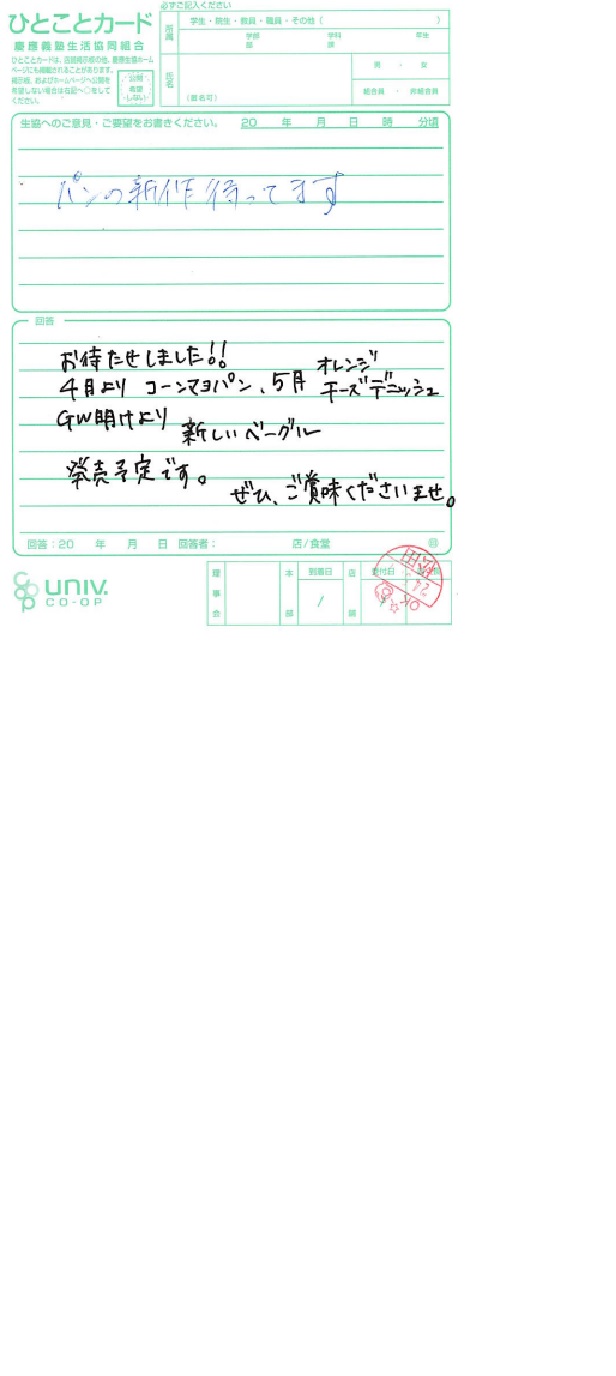 必ずご記入ください
ひとことカード
慶應義塾生活協同組合
ひとことカードは、店頭掲示板の他、慶應生協ホーム
ページにも掲載されることがあります。
掲示板、およびホームページへ公開を
希望しない場合は右記へ○をして
ください。
公開
希望
しない
所属
学生・院生・教員・職員・その他（ ）
学部 学科 年生
部 課
氏名
（匿名可）
男 ・ 女
組合員 ・ 非組合員
生協へのご意見・ご要望をお書きください。 20 年 月 日 時 分頃
パンの新作待ってます
回答
お待たせしました!!
4月より コーンマヨパン、5月 オレンジチーズデニッシュ
GW明けより 新しいベーグル
発売予定です。
ぜひ、ご賞味くださいませ。
回答：20 年 月 日 回答者： 店/食堂 ㊞
UNIV.
CO-OP
理事会
本部
到着日
/
店
受付日